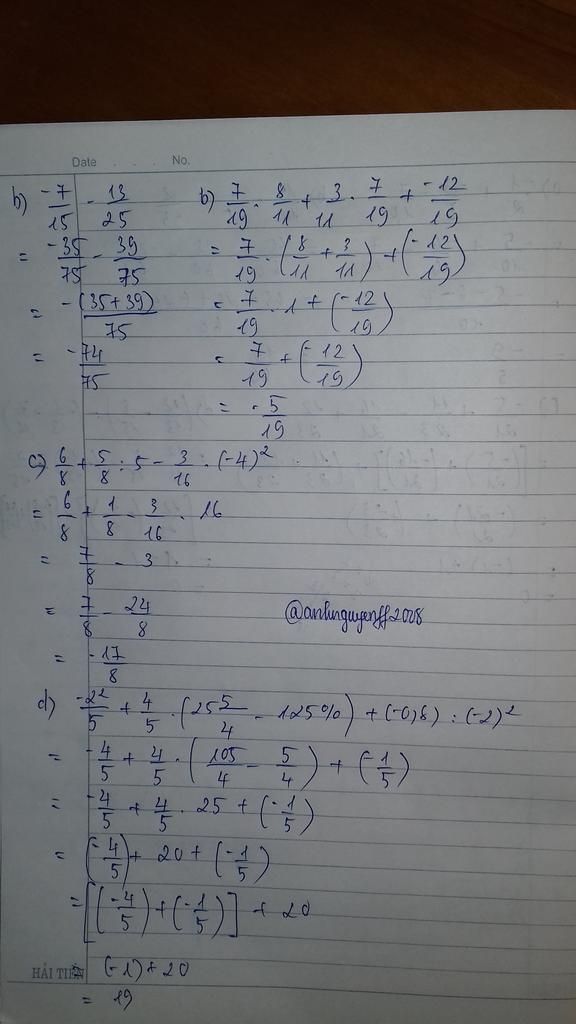 Date . . . No.
b) -7/15 - 13/25
= -35/75 - 39/75
= -(35+39)/75
= -74/75
b) 7/19 . 8/11 + 3/11 . 7/19 + -12/19
= 7/19 . (8/11 + 3/11) + (-12/19)
= 7/19 . 1 + (-12/19)
= 7/19 + (-12/19)
= -5/19
c) 6/8 + 5/8 : 5 - 3/16 . (-4)²
= 6/8 + 1/8 - 3/16 . 16
= 7/8 - 3
= 7/8 - 24/8
= -17/8
@anhnguyenff2008
d) -2²/5 + 4/5 . (25 5/4 - 125%) + (-0,8) : (-2)²
= -4/5 + 4/5 . (105/4 - 5/4) + (-1/5)
= -4/5 + 4/5 . 25 + (-1/5)
= (-4/5) + 20 + (-1/5)
= [(-4/5) + (-1/5)] + 20
= (-1) + 20
HẢI TIẾN
= 19